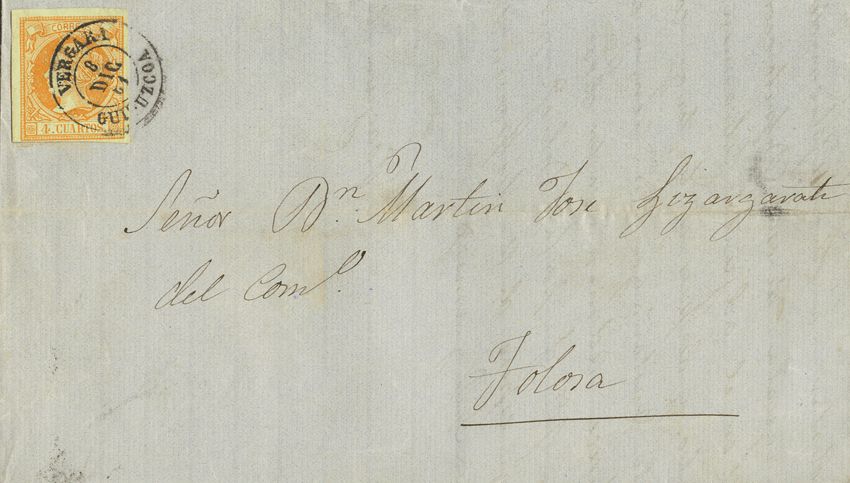 CORREOS
4. CUARTOS
VERGARA
8
DIC
61
GUIPUZCOA
Señor Dn. Martin Jose Lizargarate
del Como.
Tolosa